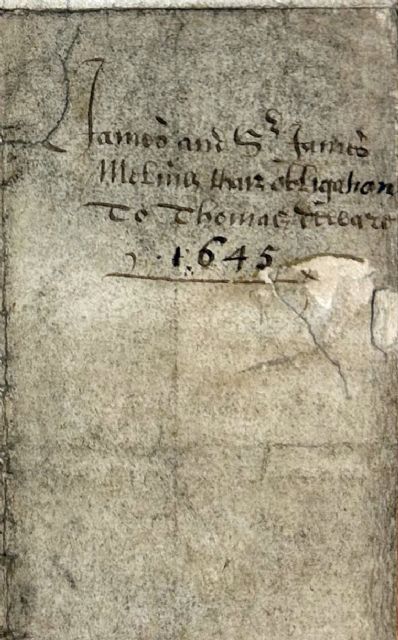 James and Sr James
Melvins thair obligation
To Thomas
1645